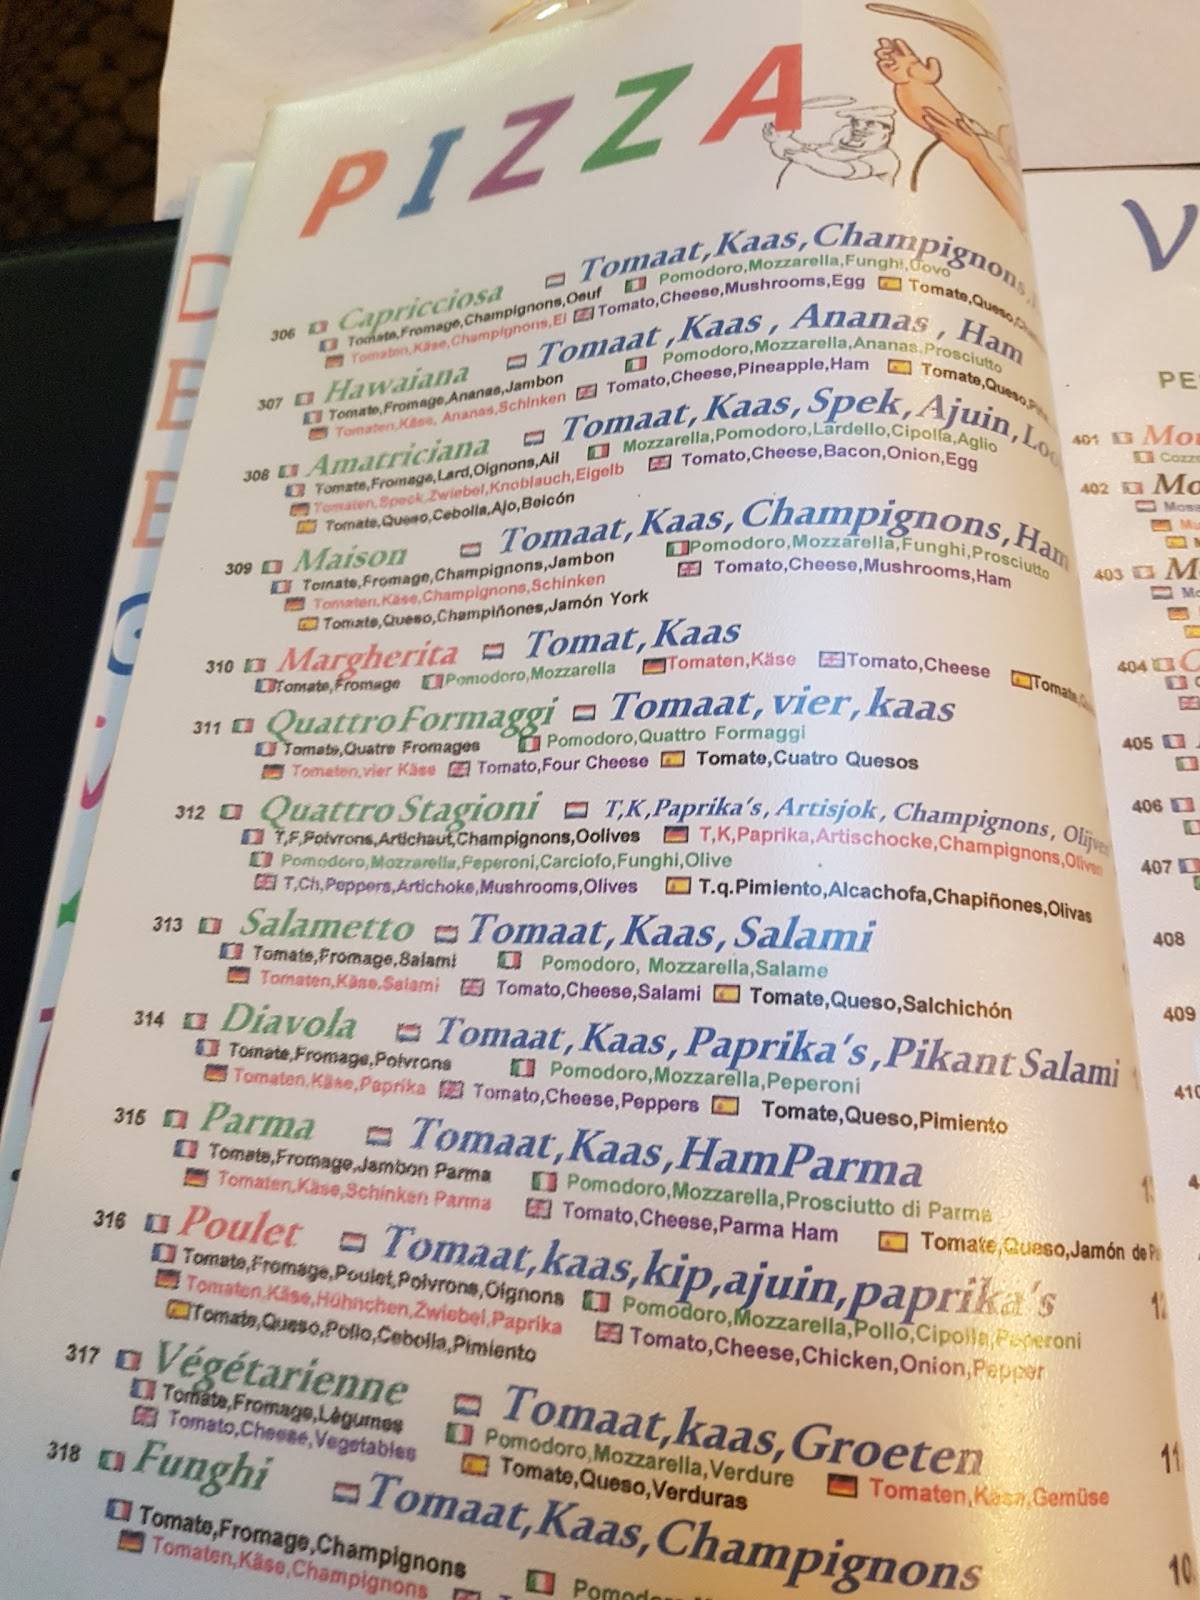 PIZZA
306 Capricciosa Tomaat,Kaas,Champignons,
Tomate,Fromage,Champignons,Oeuf Pomodoro,Mozzarella,Funghi,Uovo
Tomaten,Käse,Champignons,Ei Tomato,Cheese,Mushrooms,Egg Tomate,Queso,
307 Hawaiana Tomaat ,Kaas , Ananas , Ham
Tomate,Fromage,Ananas,Jambon Pomodoro,Mozzarella,Ananas,Prosciutto
Tomaten,Käse, Ananas,Schinken Tomato,Cheese,Pineapple,Ham Tomate,Queso,
308 Amatriciana Tomaat,Kaas,Spek,Ajuin,
Tomate,Fromage,Lard,Oignons,Ail Mozzarella,Pomodoro,Lardello,Cipolla,Aglio
Tomaten,Speck,Zwiebel,Knoblauch,Eigelb Tomato,Cheese,Bacon,Onion,Egg
Tomate,Queso,Cebolla,Ajo,Beicón
309 Maison Tomaat,Kaas,Champignons,Ham
Tomate,Fromage,Champignons,Jambon Pomodoro,Mozzarella,Funghi,Prosciutto
Tomaten,Käse,Champignons,Schinken Tomato,Cheese,Mushrooms,Ham
Tomate,Queso,Champiñones,Jamón York
310 Margherita Tomat,Kaas
Tomate,Fromage Pomodoro,Mozzarella Tomaten,Käse Tomato,Cheese
311 Quattro Formaggi Tomaat,vier,kaas
Tomate,Quatre Fromages Pomodoro,Quattro Formaggi
Tomaten,vier Käse Tomato,Four Cheese Tomate,Cuatro Quesos
312 Quattro Stagioni T,K,Paprika's, Artisjok, Champignons, Olijven
T,F,Poivrons,Artichaut,Champignons,Oolives T,K,Paprika,Artischocke,Champignons,Oliven
Pomodoro,Mozzarella,Peperoni,Carciofo,Funghi,Olive
T,Ch,Peppers,Artichoke,Mushrooms,Olives T.q.Pimiento,Alcachofa,Chapiñones,Olivas
313 Salametto Tomaat,Kaas,Salami
Tomate,Fromage,Salami Pomodoro, Mozzarella,Salame
Tomaten,Käse,Salami Tomato,Cheese,Salami Tomate,Queso,Salchichón
314 Diavola Tomaat,Kaas,Paprika's,Pikant Salami
Tomate,Fromage,Poivrons Pomodoro,Mozzarella,Peperoni
Tomaten,Käse,Paprika Tomato,Cheese,Peppers Tomate,Queso,Pimiento
315 Parma Tomaat,Kaas,HamParma
Tomate,Fromage,Jambon Parma Pomodoro,Mozzarella,Prosciutto di Parma
Tomaten,Käse,Schinken Parma Tomato,Cheese,Parma Ham Tomate,Queso,Jamón de
316 Poulet Tomaat,kaas,kip,ajuin,paprika's
Tomate,Fromage,Poulet,Poivrons,Oignons Pomodoro,Mozzarella,Pollo,Cipolla,Peperoni
Tomaten,Käse,Hühnchen,Zwiebel,Paprika Tomato,Cheese,Chicken,Onion,Pepper
Tomate,Queso,Pollo,Cebolla,Pimiento
317 Végétarienne Tomaat,kaas,Groeten 11
Tomate,Fromage,Lègumes Pomodoro,Mozzarella,Verdure Tomaten,Käse,Gemüse
Tomato,Cheese,Vegetables Tomate,Queso,Verduras
318 Funghi Tomaat,Kaas,Champignons 10
Tomate,Fromage,Champignons
Tomaten,Käse,Champignons
V
PE
401
402
403
404
405
406
407
408
409